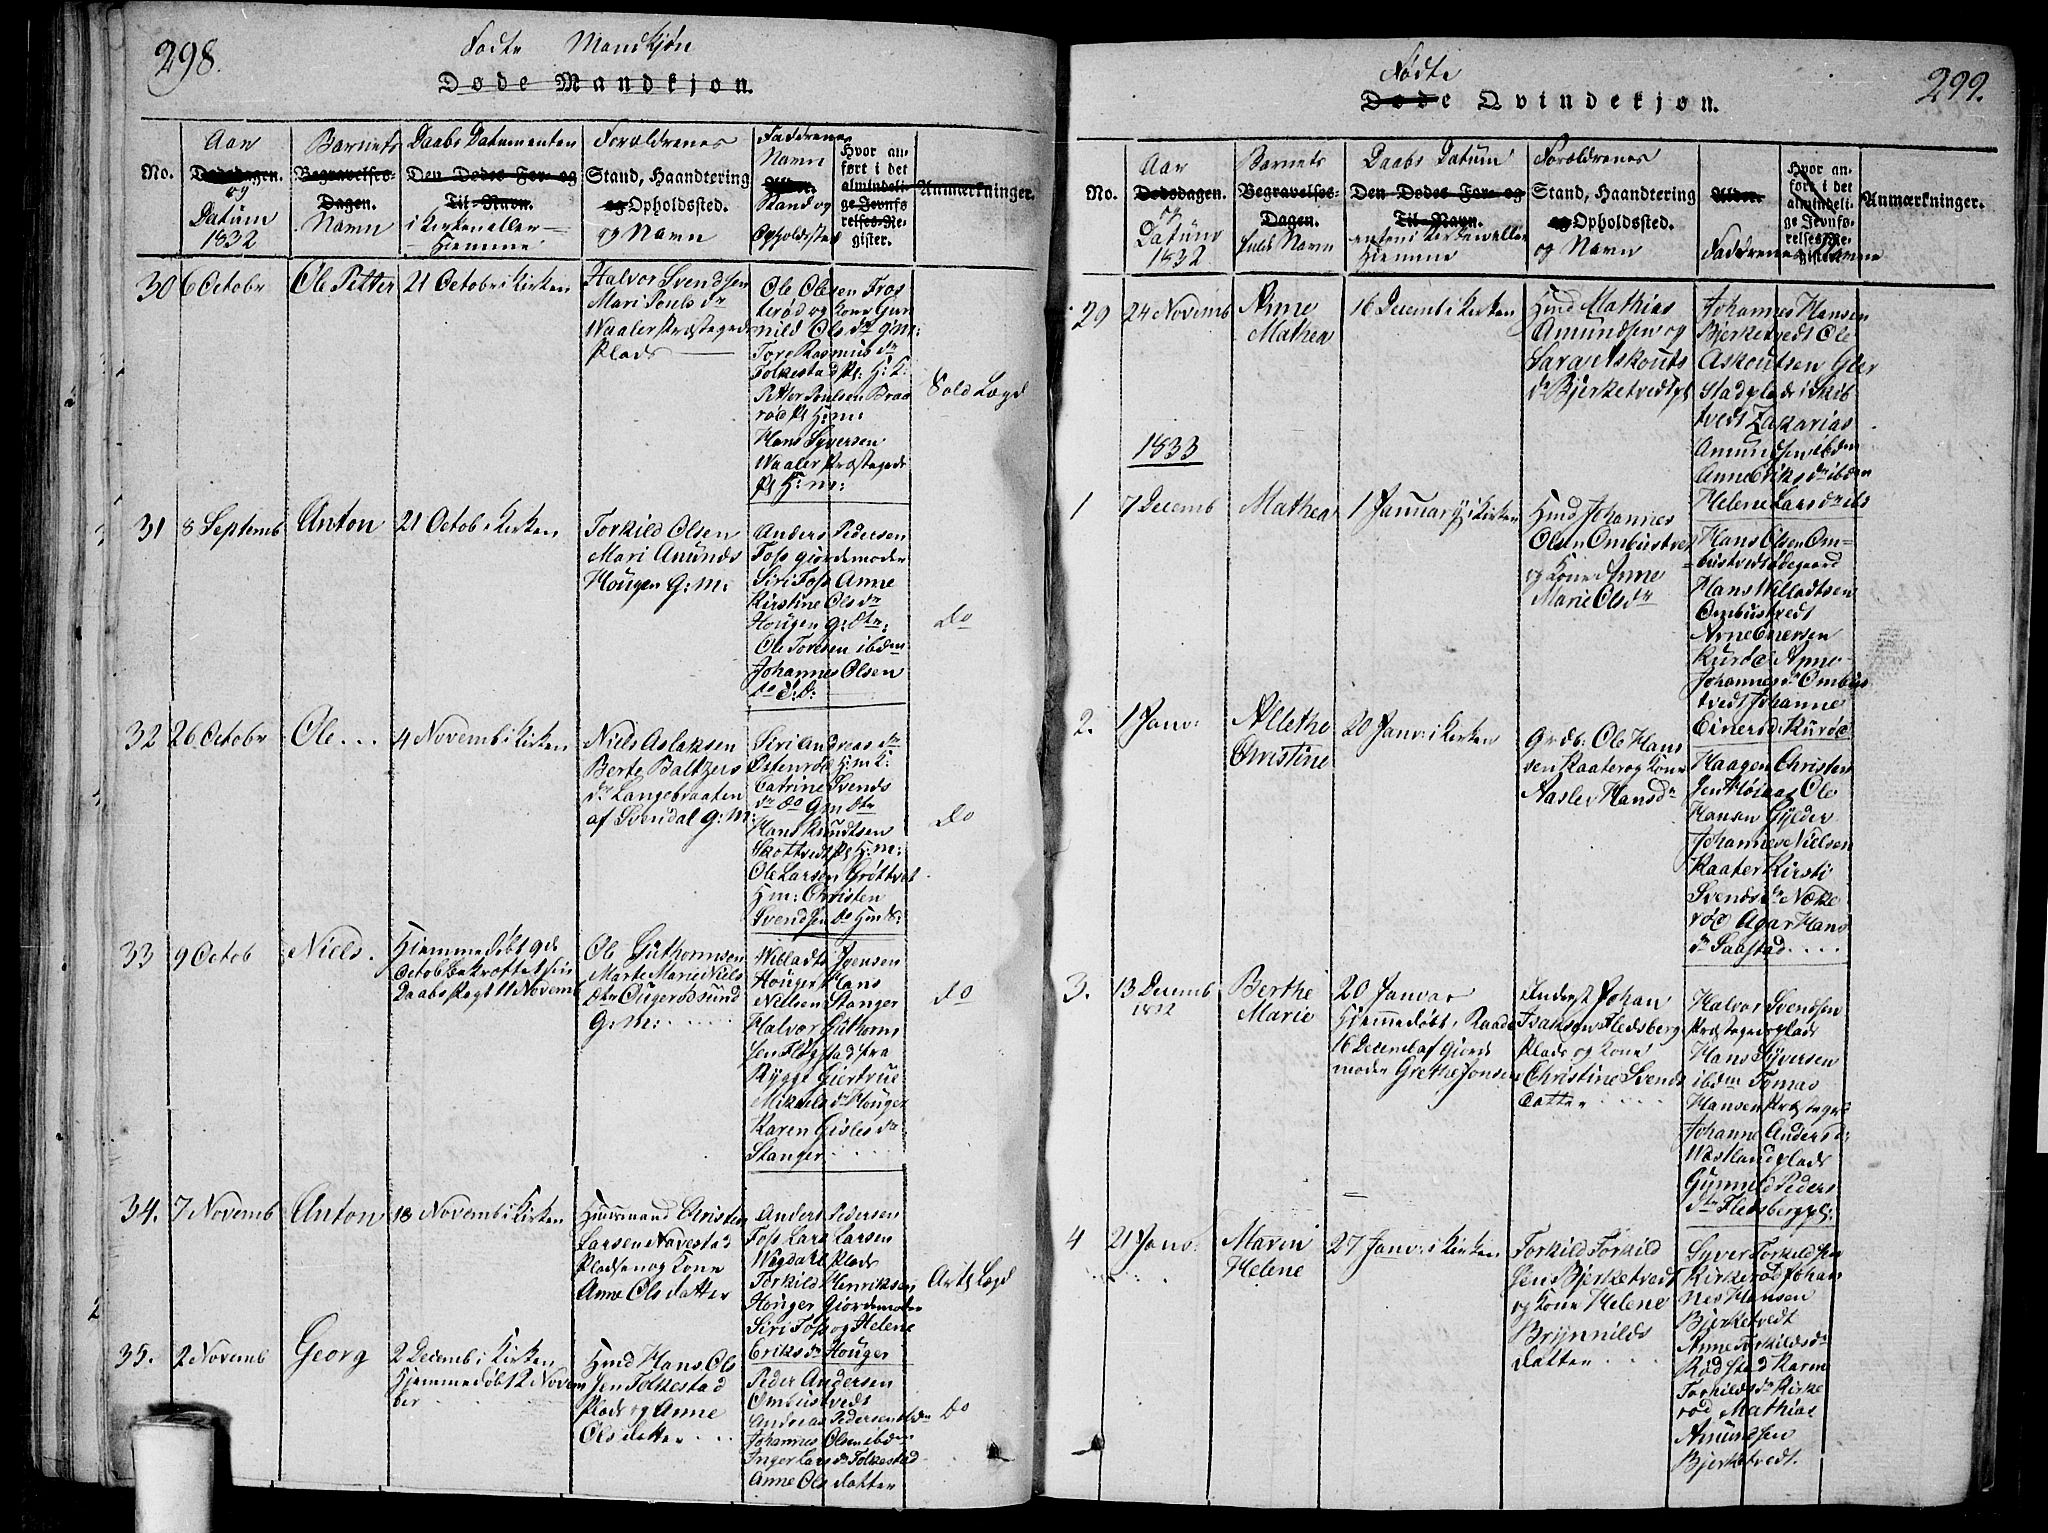 298.
Fødte Mandkjøn
Døde Mandkjøn.
No.
Aar
Dødsdagen.
og
Datum
1832
Barnets
Begravelses-
Dagen.
Navn
Daabs Datum enten
Den Dødes For- og
Til-Navn.
i Kirken eller
Hiemme
Forældrenes
Stand, Haandtering
og Opholdssted.
og Navn
Faddrenes
Navn
Alder.
Stand og
Opholdsted
Hvor an-
ført i det
almindeli-
ge Jevnfø-
relses-Re-
gister.
Anmærkninger.
30
6 Octobr
Ole Petter
21 Octobr i Kirken
Halvor Svendsen
Mari Pouls dr
Waaler Præstegrds
Plads
Ole Olsen Fros
terød og Kone Gun
nild Ols dr g:m:
Tore Rasmus dr
Folkestad Pl: H: K:
Petter Poulsen Braa
rød Pl H:m:
Hans Syversen
Waaler Præstegrds
Pl H:m:
Sold Lægd
31
8 Septemb
Anton
21 Octob i Kirken
Torkild Olsen
Mari Amunds
Hougen G:M:
Anders Pedersen
Foss giordemoder
Siri Foss Anne
Kirstine Ols dr
Hougen g: dtr:
Ole Toresen ibdm
Johannes Olsen
do d: D:
Do
32
26 Octobr
Ole ...
4 Novemb i Kirken
Niels Aslaksen
Berte Baltzers
dr Langebraaten
af Svendal G:M:
Siri Andreas dr
Østenrød H:m K:
Catrine Svends
dr do Gm dtr
Hans Knudtsen
Skottvedt Pl H:m:
Ole Larsen Grøttvet
Hm: Christen
Svendsen do Hmds:
Do
33
9 Octob
Niels.
Hjemmedøbt 9de
Octob bekræftet sin
Daabs Pagt 11 Novemb
Ole Guthormsen
Marte Marie Niels
dtr Ougerødsund
G:M:
Willadts Svensen
Houger Hans
Nielsen Stanger
Halvor Guthorm
sen Flogstad fra
Rygge Giertrue
Mikaels dr Houger
Karen Gisles dr
Stanger
do
34.
7 Novemb
Anton
18 Novemb i Kirken
Huusmand Christen
Larsen Navestad
Pladsen og Kone
Anne Ols datter
Anders Pedersen
Foss Lars Larsen
Wagdahl Plads
Torkild Henriksen
Houger Giordemoder
Siri Foss og Helene
Eriks dr Houger
Arts Lægd
35.
2 Novemb
Georg
2 Decemb i Kirken
Hjemmedøbt 2 Novem
ber
Hmd Hans Ols
sen Folkestad
Plads og Anne
Ols datter
Peder Andersen
Ombustveds
Andreas Pedersen ibdm
Johannes Olsen ibdm
Inger Lars dr Folkestad
Anne Ols datter
Do
299.
Fødte
Døde Qvindekjøn.
No.
Aar
Dødsdagen.
og
Datum
1832
Barnets
Begravelses-
Dagen.
fulde Navn
Daabs Datum
Den Dødes For- og
Til-Navn.
enten i Kirken eller
Hiemme
Forældrenes
Stand, Haandtering
og Opholdssted.
og Navn
Alder.
Faddrenes Navne
Hvor an-
ført i det
almindeli-
ge Jevnfø-
relses-Re-
gister.
Anmærkninger.
29
24 Novemb
Anne
Mathea
16 Decemb i Kirken
Hmd Mathias
Amundsen og
Sara Askouts
dr Bjerketvedt pl
Johannes Hansen
Bjerketvedt Ole
Askoutsen Gler
Stad plads i Skib
tvedt Zakarias
Amundsen ibdm
Anne Eriks dr ibdm
Helene Lars dr ibd
1833
1
7 Decemb
Mathea
1 January i Kirken
Hmd Johannes
Olsen Ombustvet
og Kone Anne
Marie Ols dr
Hans Olsen Om-
bustvedt ødegaard
Hans Willadtsen
Ombustvedt
Arne Einersen
Kurød Anne
Johannes dr Ombus
tvedt Johanne
Einers dr Kurød
2.
1 Janv:
Allethe
Christine
20 Janvr: i Kirken
Grdb: Ole Hans
sen Kaater og Kone
Aasler Hans dr
Haagen Christen
sen Høiaas Ole
Hansen Gylder
Johanne Nielsen
Kaater Kirsti
Svends dr Nøkle
rød Agar Hans
dr Saastad
3.
13 Decemb
1832
Berthe
Marie
20 Januar
Hjemmedøbt, Raade
16 Decemb af Giord
moder Grethe Jonsen
Inderst Johan
Isaksen Fledsberg
Plads og Kone
Christine Svends
Datter
Halvor Svendsen
Præstegrdsplads
Hans Syversen
ibdm Tomas
Hansen Præstegrd
Johanne Anders d:
Westland plads
Gunnild Peders
dtr Fledsberg pl:
4
21 Janv:
Maren
Helene
27 Janvr: i Kirken
Torkild Torkild
sen Bjerketvedt
og Kone Helene
Brynnilds
datter
Syver Torkildsen
Kirkerød Johan
nes Hansen
Bjerketvedt
Anne Torkilds dr
Rødsted Karen
Torkilds dr Kirke
rød Mathias
Amundsen
Bjerketvedt.